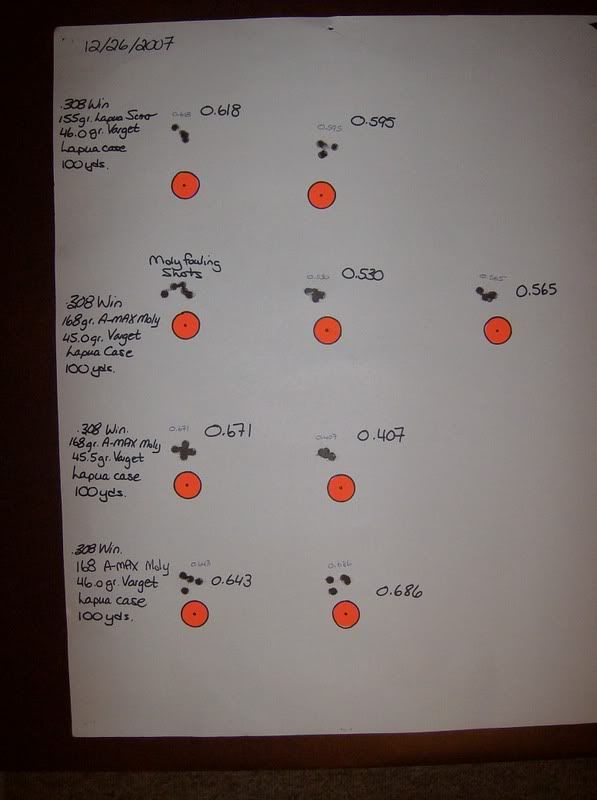 12/26/2007
.308 Win
155gr. Lapua Scenar
46.0 gr. Varget
Lapua case
100 yds.
0.618 0.618
0.595 0.595
Moly fouling
Shots
0.530 0.530
0.565 0.565
.308 Win
168gr. A-MAX Moly
45.0gr. Varget
Lapua Case
100 yds.
0.671 0.671
0.407 0.407
.308 Win.
168gr. A-MAX Moly
45.5gr. Varget
Lapua case
100 yds.
.308 Win.
168 A-MAX Moly
46.0gr. Varget
Lapua case
100 yds.
0.643 0.643
0.686 0.686